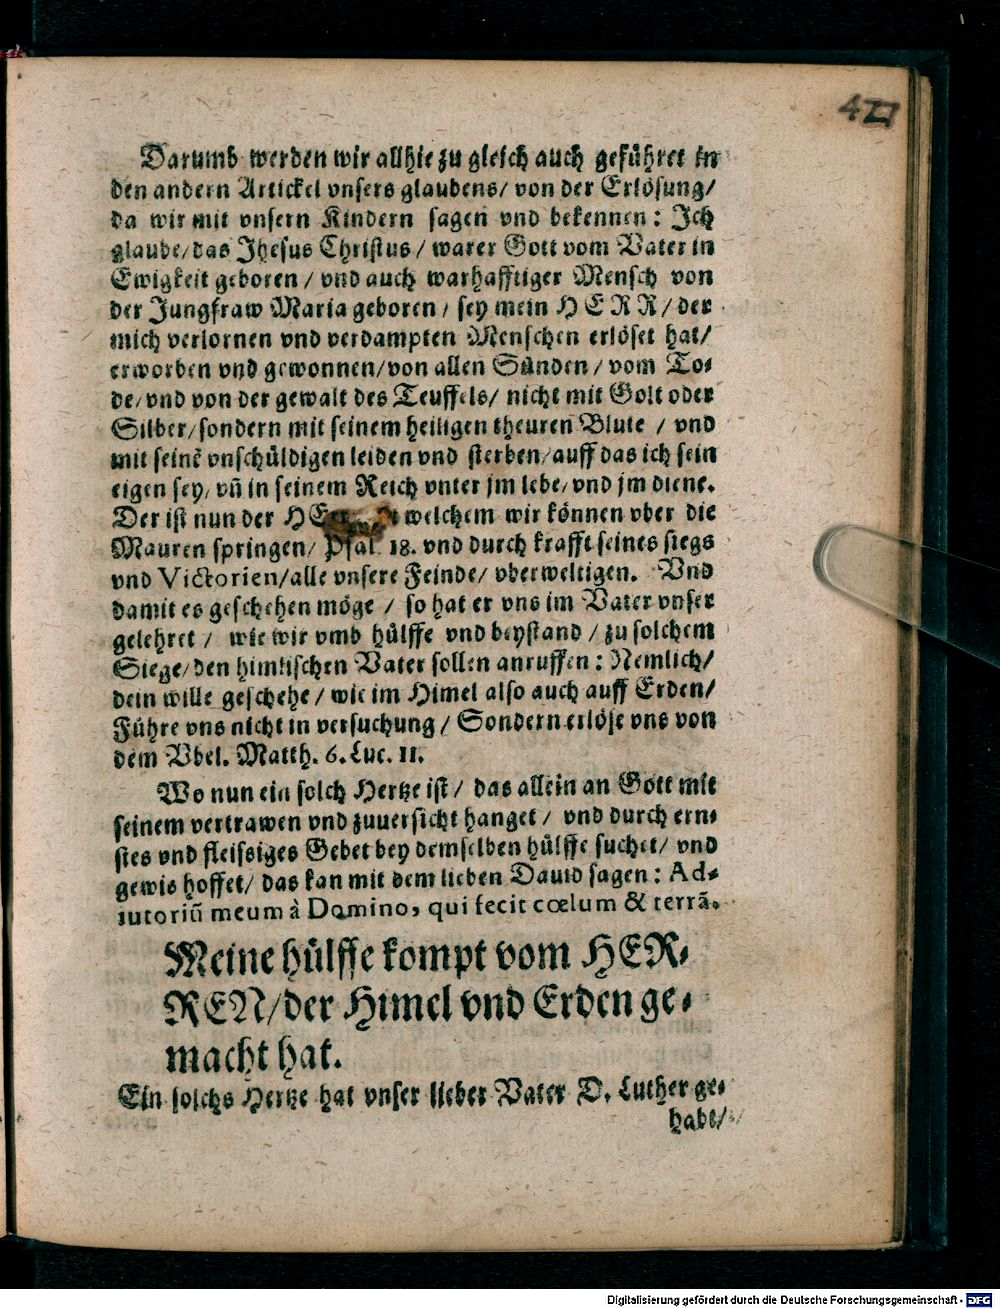 Darumb werden wir allhie zu gleich auch geführet in
den andern Artickel vnsers glaubens/ von der Erlösung/
da wir mit vnsern Kindern sagen vnd bekennen: Ich
glaube/das Ihesus Christus/ warer Gott vom Vater in
Ewigkeit geboren/ vnd auch warhafftiger Mensch von
der Jungfraw Maria geboren/ sey mein HERR/ der
mich verlornen vnd verdampten Menschen erlöset hat/
erworben vnd gewonnen/von allen Sünden/ vom To-
de/vnd von der gewalt des Teuffels/ nicht mit Golt oder
Silber/sondern mit seinem heiligen theuren Blute/ vnd
mit seinē vnschüldigen leiden vnd sterben/auff das ich sein
eigen sey/ vñ in seinem Reich vnter jm lebe/vnd jm diene.
Der ist nun der welchem wir können vber die
Mauren springen/ Psal. 18. vnd durch krafft seines siegs
vnd Victorien/alle vnsere Feinde/ vberweltigen. Vnd
damit es geschehen möge/ so hat er vns im Vater vnser
gelehret/ wie wir vmb hülffe vnd beystand/ zu solchem
Siege/den himlischen Vater sollen anruffen: Nemlich/
dein wille geschehe/ wie im Himel also auch auff Erden/
Führe vns nicht in versuchung/ Sondern erlöse vns von
dem Vbel. Matth. 6. Luc. 11.
Wo nun ein solch Hertze ist/ das allein an Gott mit
seinem vertrawen vnd zuuersicht hanget/ vnd durch ern-
stes vnd fleissiges Gebet bey demselben hülffe suchet/ vnd
gewis hoffet/ das kan mit dem lieben Dauid sagen: Ad-
iutoriū meum à Domino, qui fecit cœlum & terrā.
Meine hülffe kompt vom HER-
REN/der Himel vnd Erden ge-
macht hat.
Ein solchs Hertze hat vnser lieber Vater D. Luther ge-
habt/
Digitalisierung gefördert durch die Deutsche Forschungsgemeinschaft - DFG